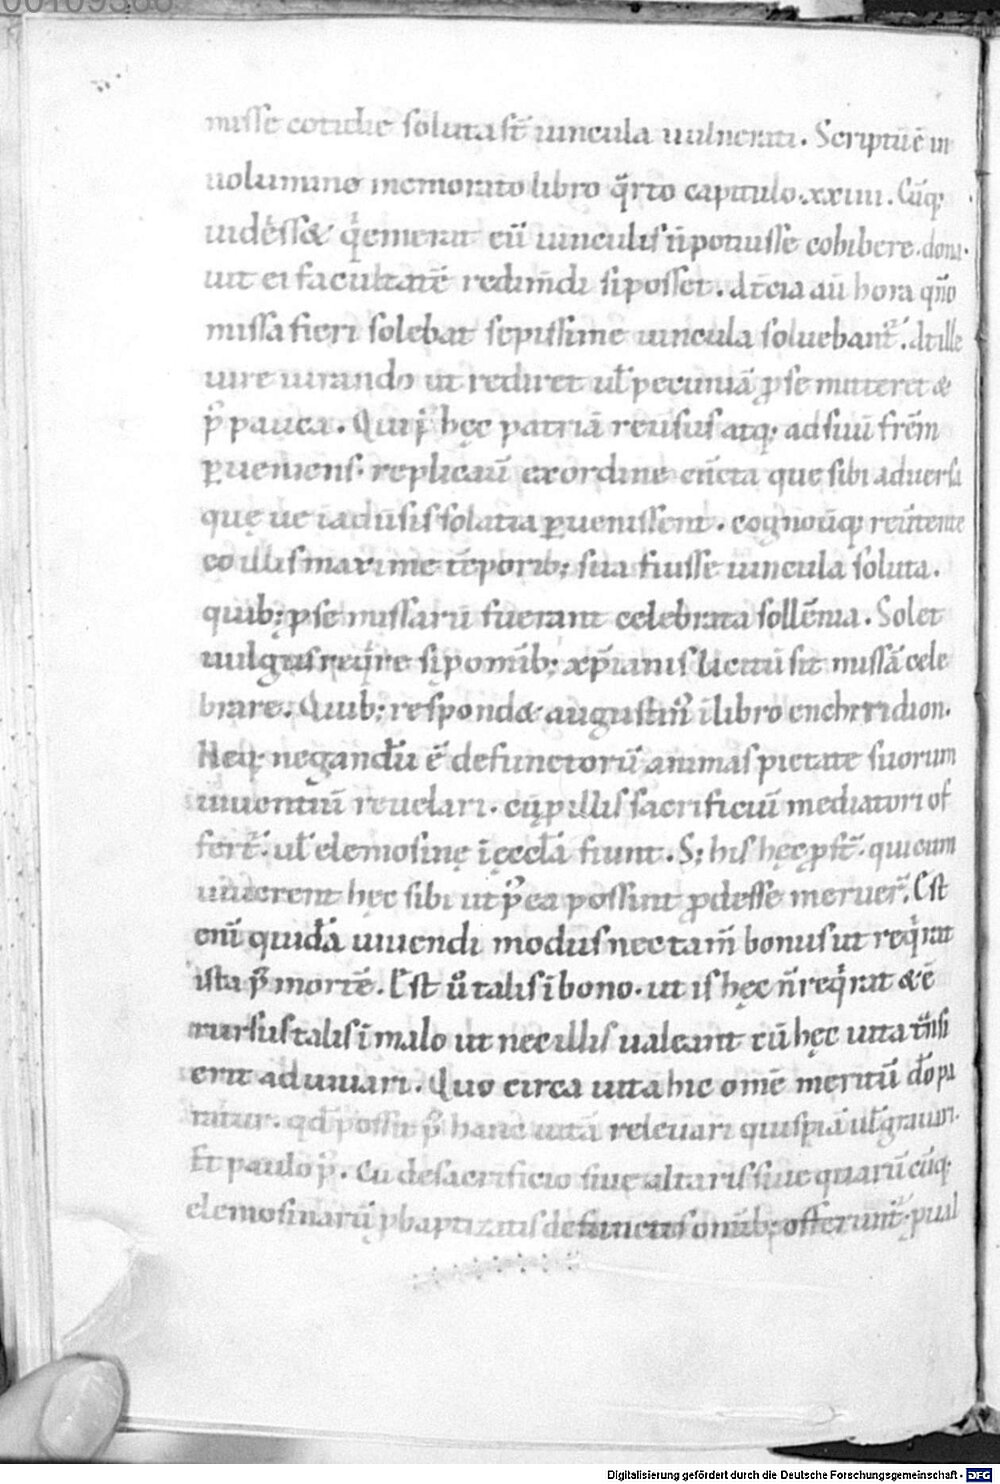 00109388
misse cotidie soluta st̄ uincula uulnerati. Scriptū ē in
uolumine memorato libro q̄rto capitulo.xxiiii. Cūq;
uidēss& q͛ emerat eū uinculis n̄ potuisse cohibere. dona-
uit ei facultatē redim̄di si posset. A t̄cia aū hora qn̄o
missa fieri solebat sepissime uincula soluebant͛. At ille
iure iurando ut rediret ul̄ pecuniā ꝓ se mitteret &
p̄ pauca. Qui p̄ hęc patriā reuſus atq; ad suū frēm
ꝑueniens. replicaū exordine cūcta que sibi aduersa
quę ue iadūsis solatia ꝑuenissent. cognoūq; reūtente
eo illis maxime tēporib; sua fuisse uincula soluta.
quib; ꝓ se missarū fuerant celebrata sollēnia. Solet
uulgus req͛re si ꝓ omīb; xp̄ianis licitū sit missā cele
brare. Quib; respond& augustin̄ ī libro encheridion.
Neq; negandū ē defunctorū animas pietate suorum
uiuentiū reuelari. cū ꝓ illis sacrificiū mediatori of
fert͛. ul̄ elemosinę ī ęccłā fiunt. S; his hęc ꝓst̄. qui cum
uiuerent hęc sibi ut p̄ ea possint ꝓdesse meruer̄. Est
enī quidā uiuendi modus nec tam̄ bonus ut req͛rat
ista p̄ mortē. Est ū talis ī bono. ut is hęc n̄ req͛rat & ē
rursus talis ī malo ut nec illis ualeant cū hęc uita t̄nsi
erit adiuuari. Quo circa uita hic omē meritū ꝯpa
ratur. qđ possit p̄ hanc uitā releuari quispiā ul̄ grauari.
Et paulo p̄. Cū de sacrificio siue altaris siue quarūcūq;
elemosinarū ꝓ baptizatis defunctis omīb; offerunt͛. ꝓ ual
Digitalisierung gefördert durch die Deutsche Forschungsgemeinschaft - DFG